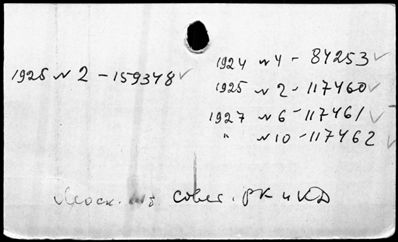 1925 N 2 - 159348 ✓
1924 N 4 - 84253 ✓
1925 N 2 - 117460 ✓
1927 N 6 - 117461 ✓
" N 10 - 117462 ✓
совет. РК и КД